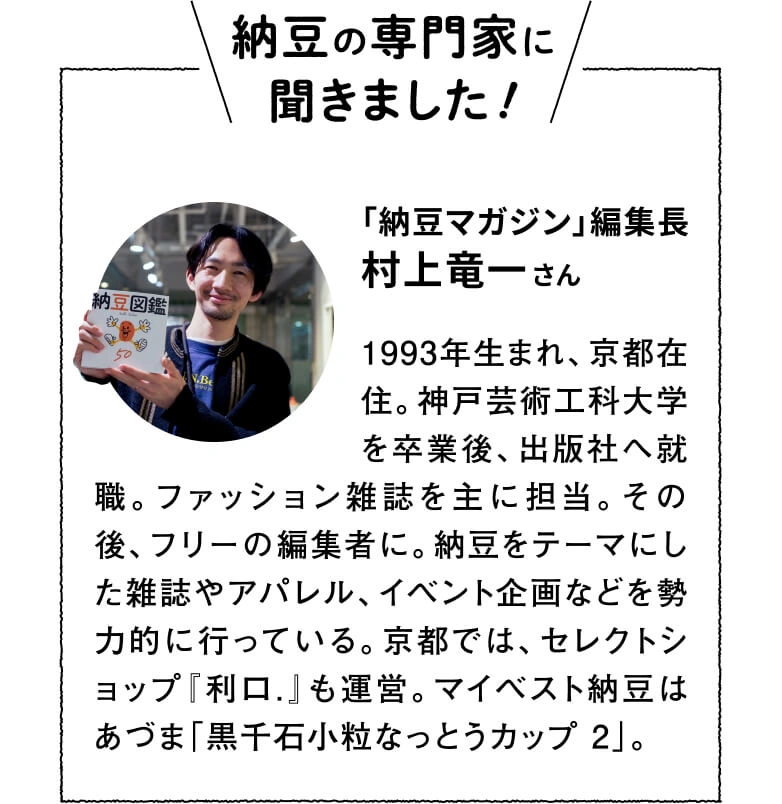 納豆の専門家に
聞きました!
「納豆マガジン」編集長
村上竜一さん
納豆図鑑
50
1993年生まれ、京都在
住。神戸芸術工科大学
を卒業後、出版社へ就
職。ファッション雑誌を主に担当。その
後、フリーの編集者に。納豆をテーマにし
た雑誌やアパレル、イベント企画などを勢
力的に行っている。京都では、セレクトシ
ョップ『利口.』も運営。マイベスト納豆は
あづま「黒千石小粒なっとうカップ 2」。